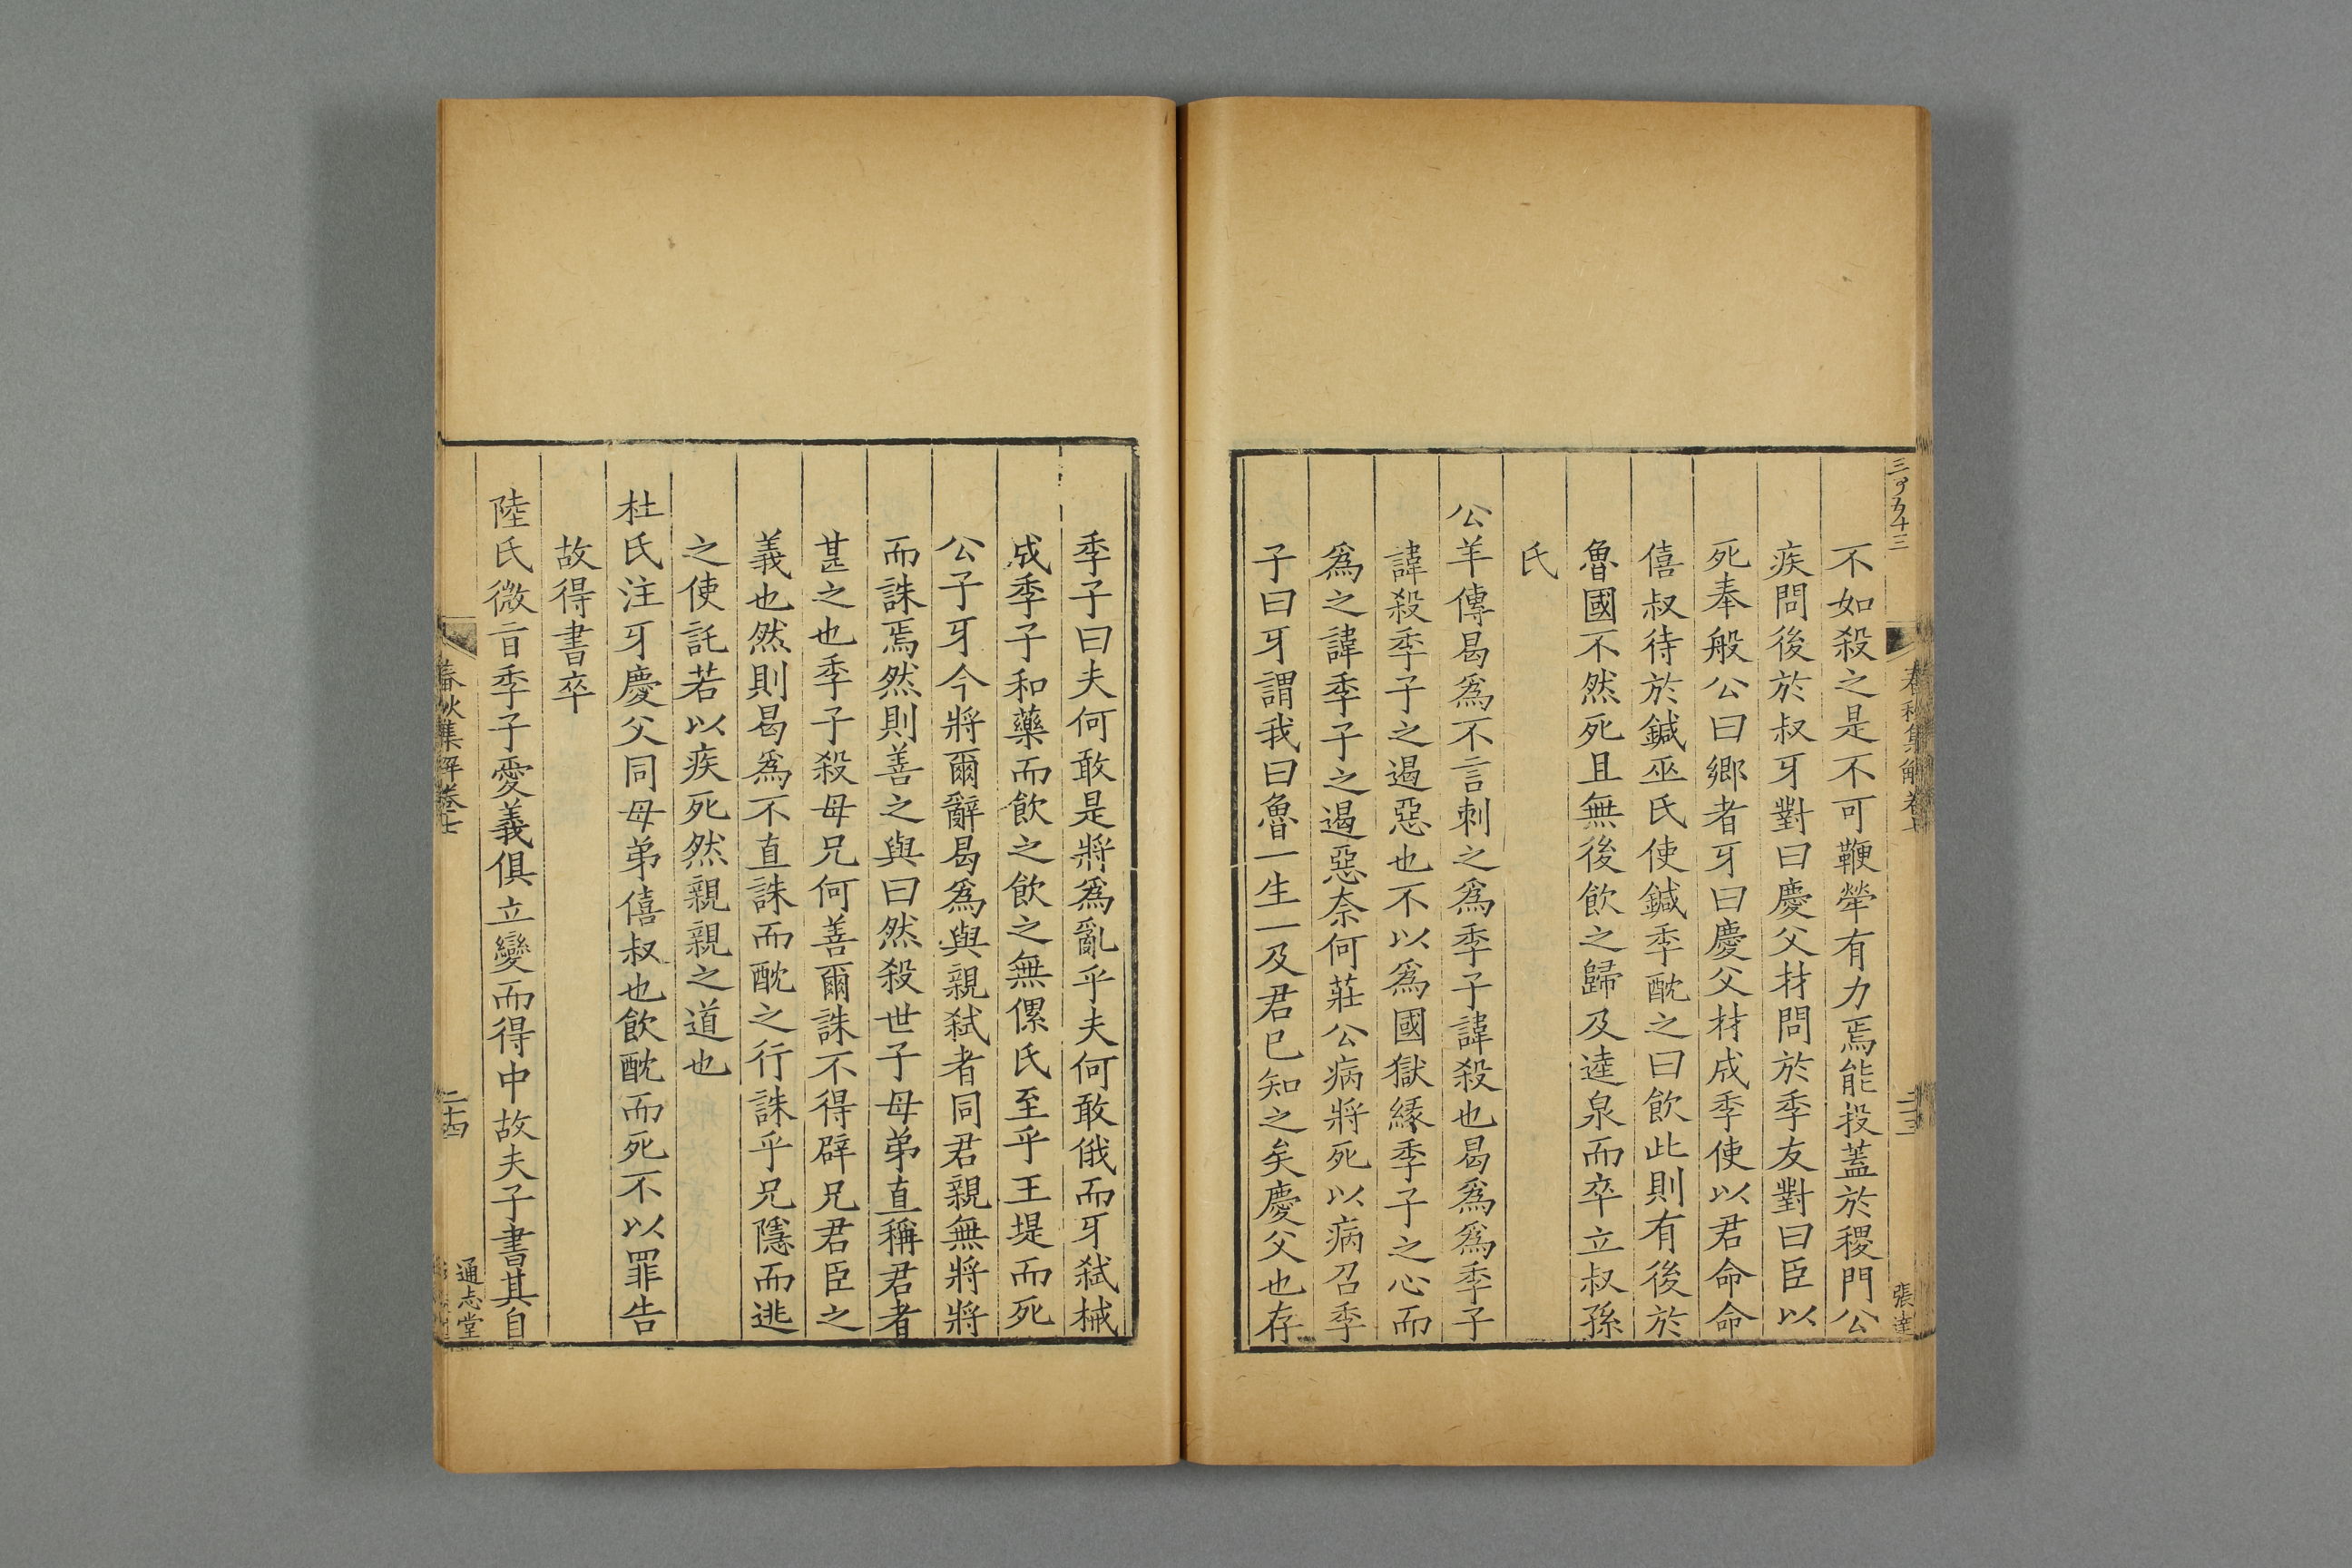 春秋集解卷七
二十三
張達
不如殺之是不可鞭犖有力焉能投蓋於稷門公
疾問後於叔牙對曰慶父材問於季友對曰臣以
死奉般公曰鄉者牙曰慶父材成季使以君命命
僖叔待於鍼巫氏使鍼季酖之曰飲此則有後於
魯國不然死且無後飲之歸及逵泉而卒立叔孫
氏
公羊傳曷爲不言刺之爲季子諱殺也曷爲爲季子
諱殺季子之遏惡也不以爲國獄緣季子之心而
爲之諱季子之遏惡奈何莊公病將死以病召季
子曰牙謂我曰魯一生一及君已知之矣慶父也存
季子曰夫何敢是將爲亂乎夫何敢俄而牙弑械
成季子和藥而飲之飲之無傫氏至乎王堤而死
公子牙今將爾辭曷爲與親弑者同君親無將將
而誅焉然則善之與曰然殺世子母弟直稱君者
甚之也季子殺母兄何善爾誅不得辟兄君臣之
義也然則曷爲不直誅而酖之行誅乎兄隱而逃
之使託若以疾死然親親之道也
杜氏注牙慶父同母弟僖叔也飲酖而死不以罪告
故得書卒
陸氏微旨季子愛義俱立變而得中故夫子書其自
春秋集解卷七
二十四
通志堂